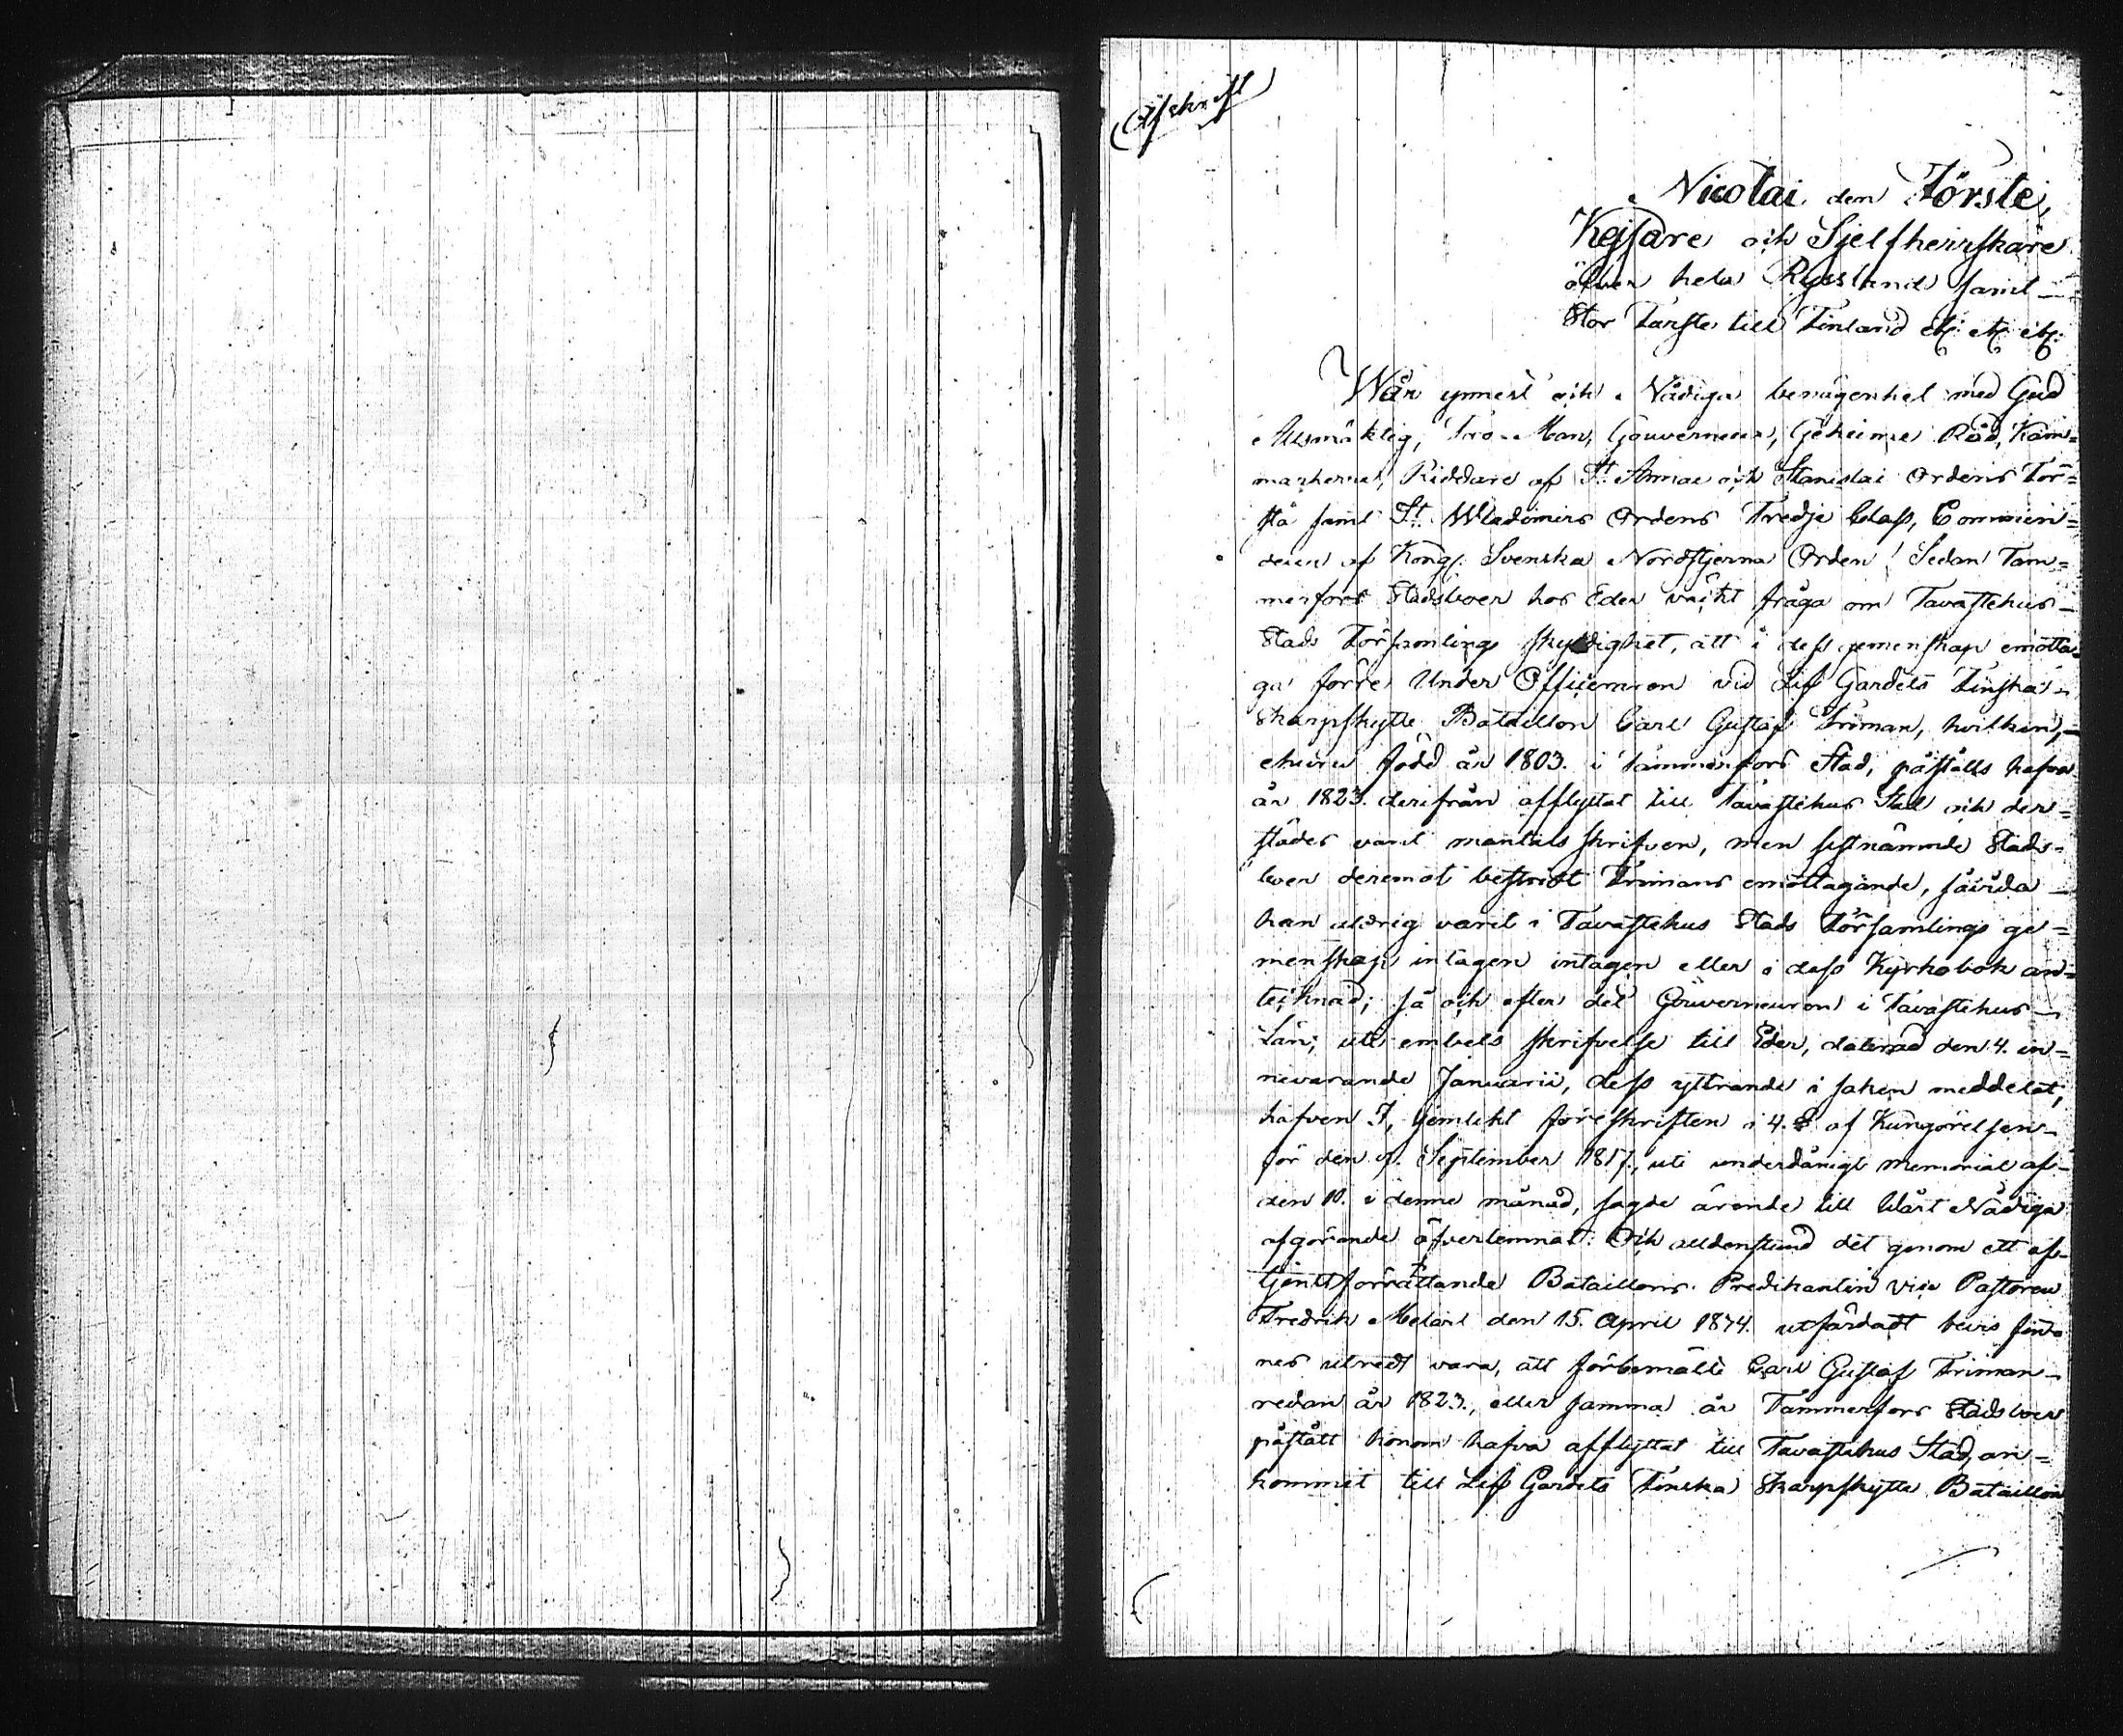 Afskrift
Nicolai den Förste,
Kejsare och Sjelfherrskare
öfver hela Ryssland samt
Stor Furste till Finland etc. etc. etc.
Wår ynnest och Nådiga benägenhet med Gud
Allsmäktig, Tro-Man, Gouverneur, Geheime Råd, Kam=
marherre, Riddare af St. Annae och Stanislai Ordens För=
sta samt St. Wladimirs Ordens Tredje Class, Commen=
deur af Kongl. Svenska Nordstjerna Orden! Sedan Tam=
merfors Stadsboer hos Eder väckt fråga om Tavastehus
Stads Församlings skyldighet, att i dess gemenskap emotta=
ga förre Under Officeraren vid Lif Gardets Finska
Skarpskytte Bataillon Carl Gustaf Friman, hvilken,
ehuru född år 1803. i Tammerfors Stad, påstålls hafva
år 1823. derifrån afflyttat till Tavastehus Stad och der=
städes varit mantals skrifven, men sistnämnde Stads=
boer deremot bestridt Frimans emottagande, såvida
han aldrig varit i Tavastehus Stads Församlings ge=
menskap intagen intagen eller i dess Kyrkobok an=
tecknad; så och efter det Gouverneuren i Tavastehus
Län, uti embets skrifvelse till Eder, daterad den 4. in=
nevarande Januarii, dess yttrande i saken meddelat,
hafven I, jemlikt föreskriften i 4. § af Kungörelsen
för den September 1817, uti underdånigt memorial af
den 10. i denne månad, sagde ärende till Wårt Nådiga
afgörande öfverlemnat. Och alldenstund det genom ett af
tjenstförrättande Bataillons Predikanten Vice Pastoren
Fredrik Melart den 15. April 1874. utfärdadt bevis fin=
nes utredt vara, att förbemälte Carl Gustaf Friman
redan år 1823., eller samma år Tammerfors Stadsboer
påstått honom hafva afflyttat till Tavastehus Stad, an=
kommit till Lif Gardets Finska Skarpskytte Bataillon